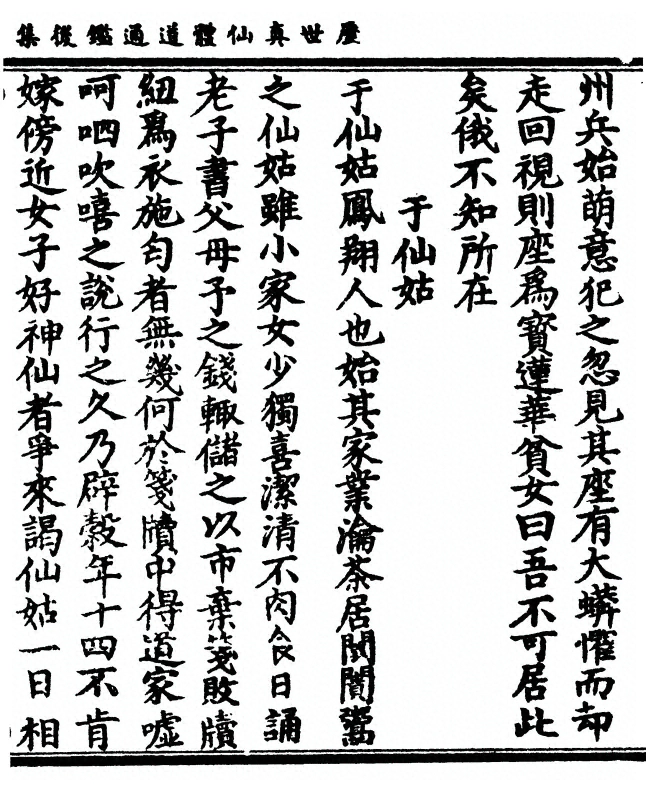 歷世真仙體道通鑑後集
州兵始萌意犯之忽見其座有大蟒懼而却
走回視則座爲寳蓮華貧女曰吾不可居此
矣俄不知所在
于仙姑
于仙姑鳳翔人也始其家業瀹茶居闤闠鬻
之仙姑雖小家女少獨喜潔清不肉食日誦
老子書父母予之錢輙儲之以市棄箋敗牘
紐爲衣施匄者無幾何於箋牘中得道家噓
呵呬吹嘻之說行之久乃辟糓年十四不肯
嫁傍近女子好神仙者爭來謁仙姑一日相